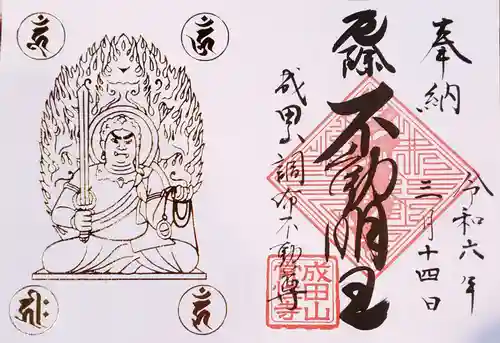 奉納
令和六年
三月十四日
不動明王
成田山
調布不動尊
成田山
常性寺